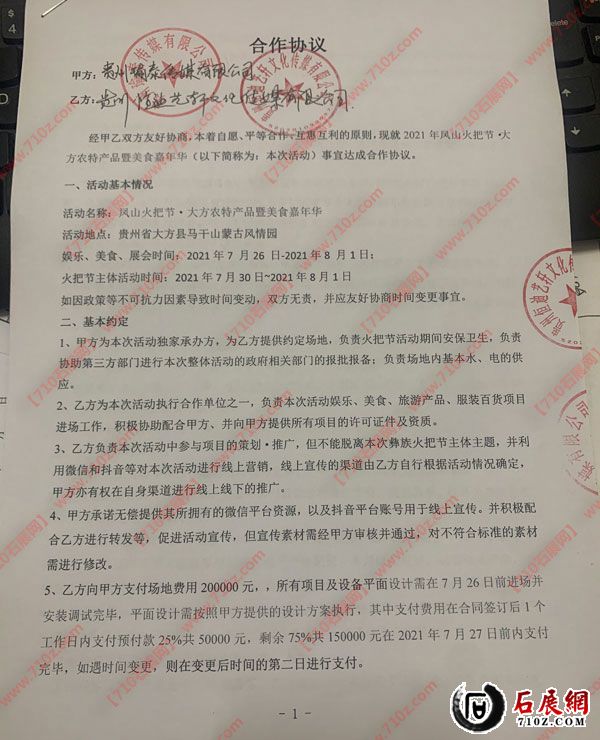 合作协议
甲方：贵州 传媒有限公司
乙方：贵州恒迪艺轩文化传媒有限公司
经甲乙双方友好协商，本着自愿、平等合作、互惠互利的原则，现就 2021 年凤山火把节·大
方农特产品暨美食嘉年华（以下简称为：本次活动）事宜达成合作协议。
一、活动基本情况
活动名称：凤山火把节·大方农特产品暨美食嘉年华
活动地点：贵州省大方县马干山蒙古风情园
娱乐、美食、展会时间：2021 年 7 月 26 日-2021 年 8 月 1 日；
火把节主体活动时间：2021 年 7 月 30 日~2021 年 8 月 1 日
如因政策等不可抗力因素导致时间变动，双方无责，并应友好协商时间变更事宜。
二、基本约定
1、甲方为本次活动独家承办方，为乙方提供约定场地，负责火把节活动期间安保卫生，负责
协助第三方部门进行本次整体活动的政府相关部门的报批报备；负责场地内基本水、电的供
应。
2、乙方为本次活动执行合作单位之一，负责本次活动娱乐、美食、旅游产品、服装百货项目
进场工作，积极协助配合甲方、并向甲方提供所有项目的许可证件及资质。
3、乙方负责本次活动中参与项目的策划·推广，但不能脱离本次彝族火把节主体主题，并利
用微信和抖音等对本次活动进行线上营销，线上宣传的渠道由乙方自行根据活动情况确定，
甲方亦有权在自身渠道进行线上线下的推广。
4、甲方承诺无偿提供其所拥有的微信平台资源，以及抖音平台账号用于线上宣传。并积极配
合乙方进行转发等，促进活动宣传，但宣传素材需经甲方审核并通过，对不符合标准的素材
需进行修改。
5、乙方向甲方支付场地费用 200000 元，，所有项目及设备平面设计需在 7 月 26 日前进场并
安装调试完毕，平面设计需按照甲方提供的设计方案执行，其中支付费用在合同签订后 1 个
工作日内支付预付款 25%共 50000 元，剩余 75%共 150000 元在 2021 年 7 月 27 日前内支付
完毕，如遇时间变更，则在变更后时间的第二日进行支付。
- 1 -
石展網
710Z.COM
【710石展网】www.710z.com